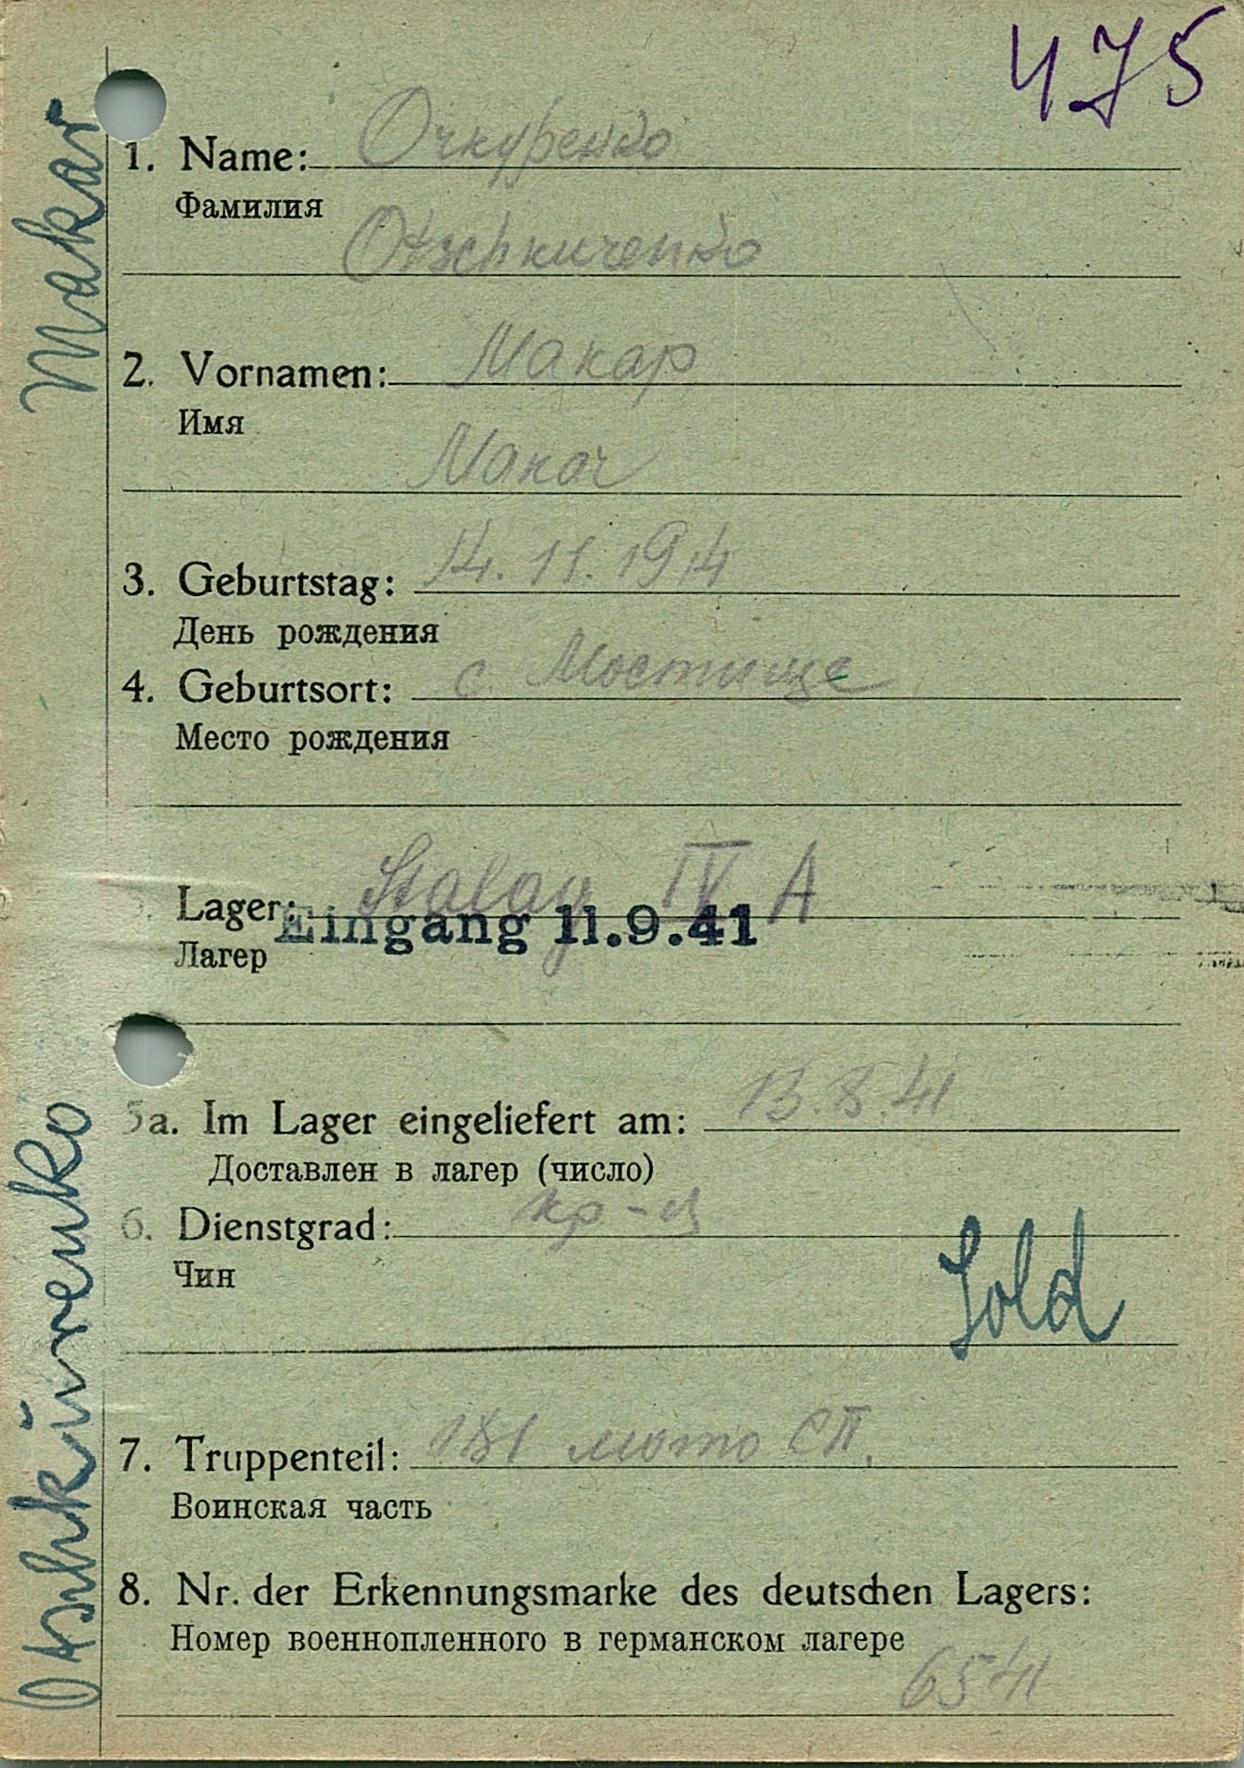 475
1. Name: Очкуренко
Фамилия
Otschkurenko
2. Vornamen: Макар
Имя
Makar
3. Geburtstag: 14. 11. 1914
День рождения
4. Geburtsort: с. Мостище
Место рождения
5. Lager: Stalag IV A
Eingang 11.9.41
Лагер
5a. Im Lager eingeliefert am: 13.8.41
Доставлен в лагер (число)
6. Dienstgrad: кр-ц
Чин
Sold
7. Truppenteil: 181 мото СП.
Воинская часть
8. Nr. der Erkennungsmarke des deutschen Lagers:
Номер военнопленного в германском лагере
6541
Makar
Otshkurenko